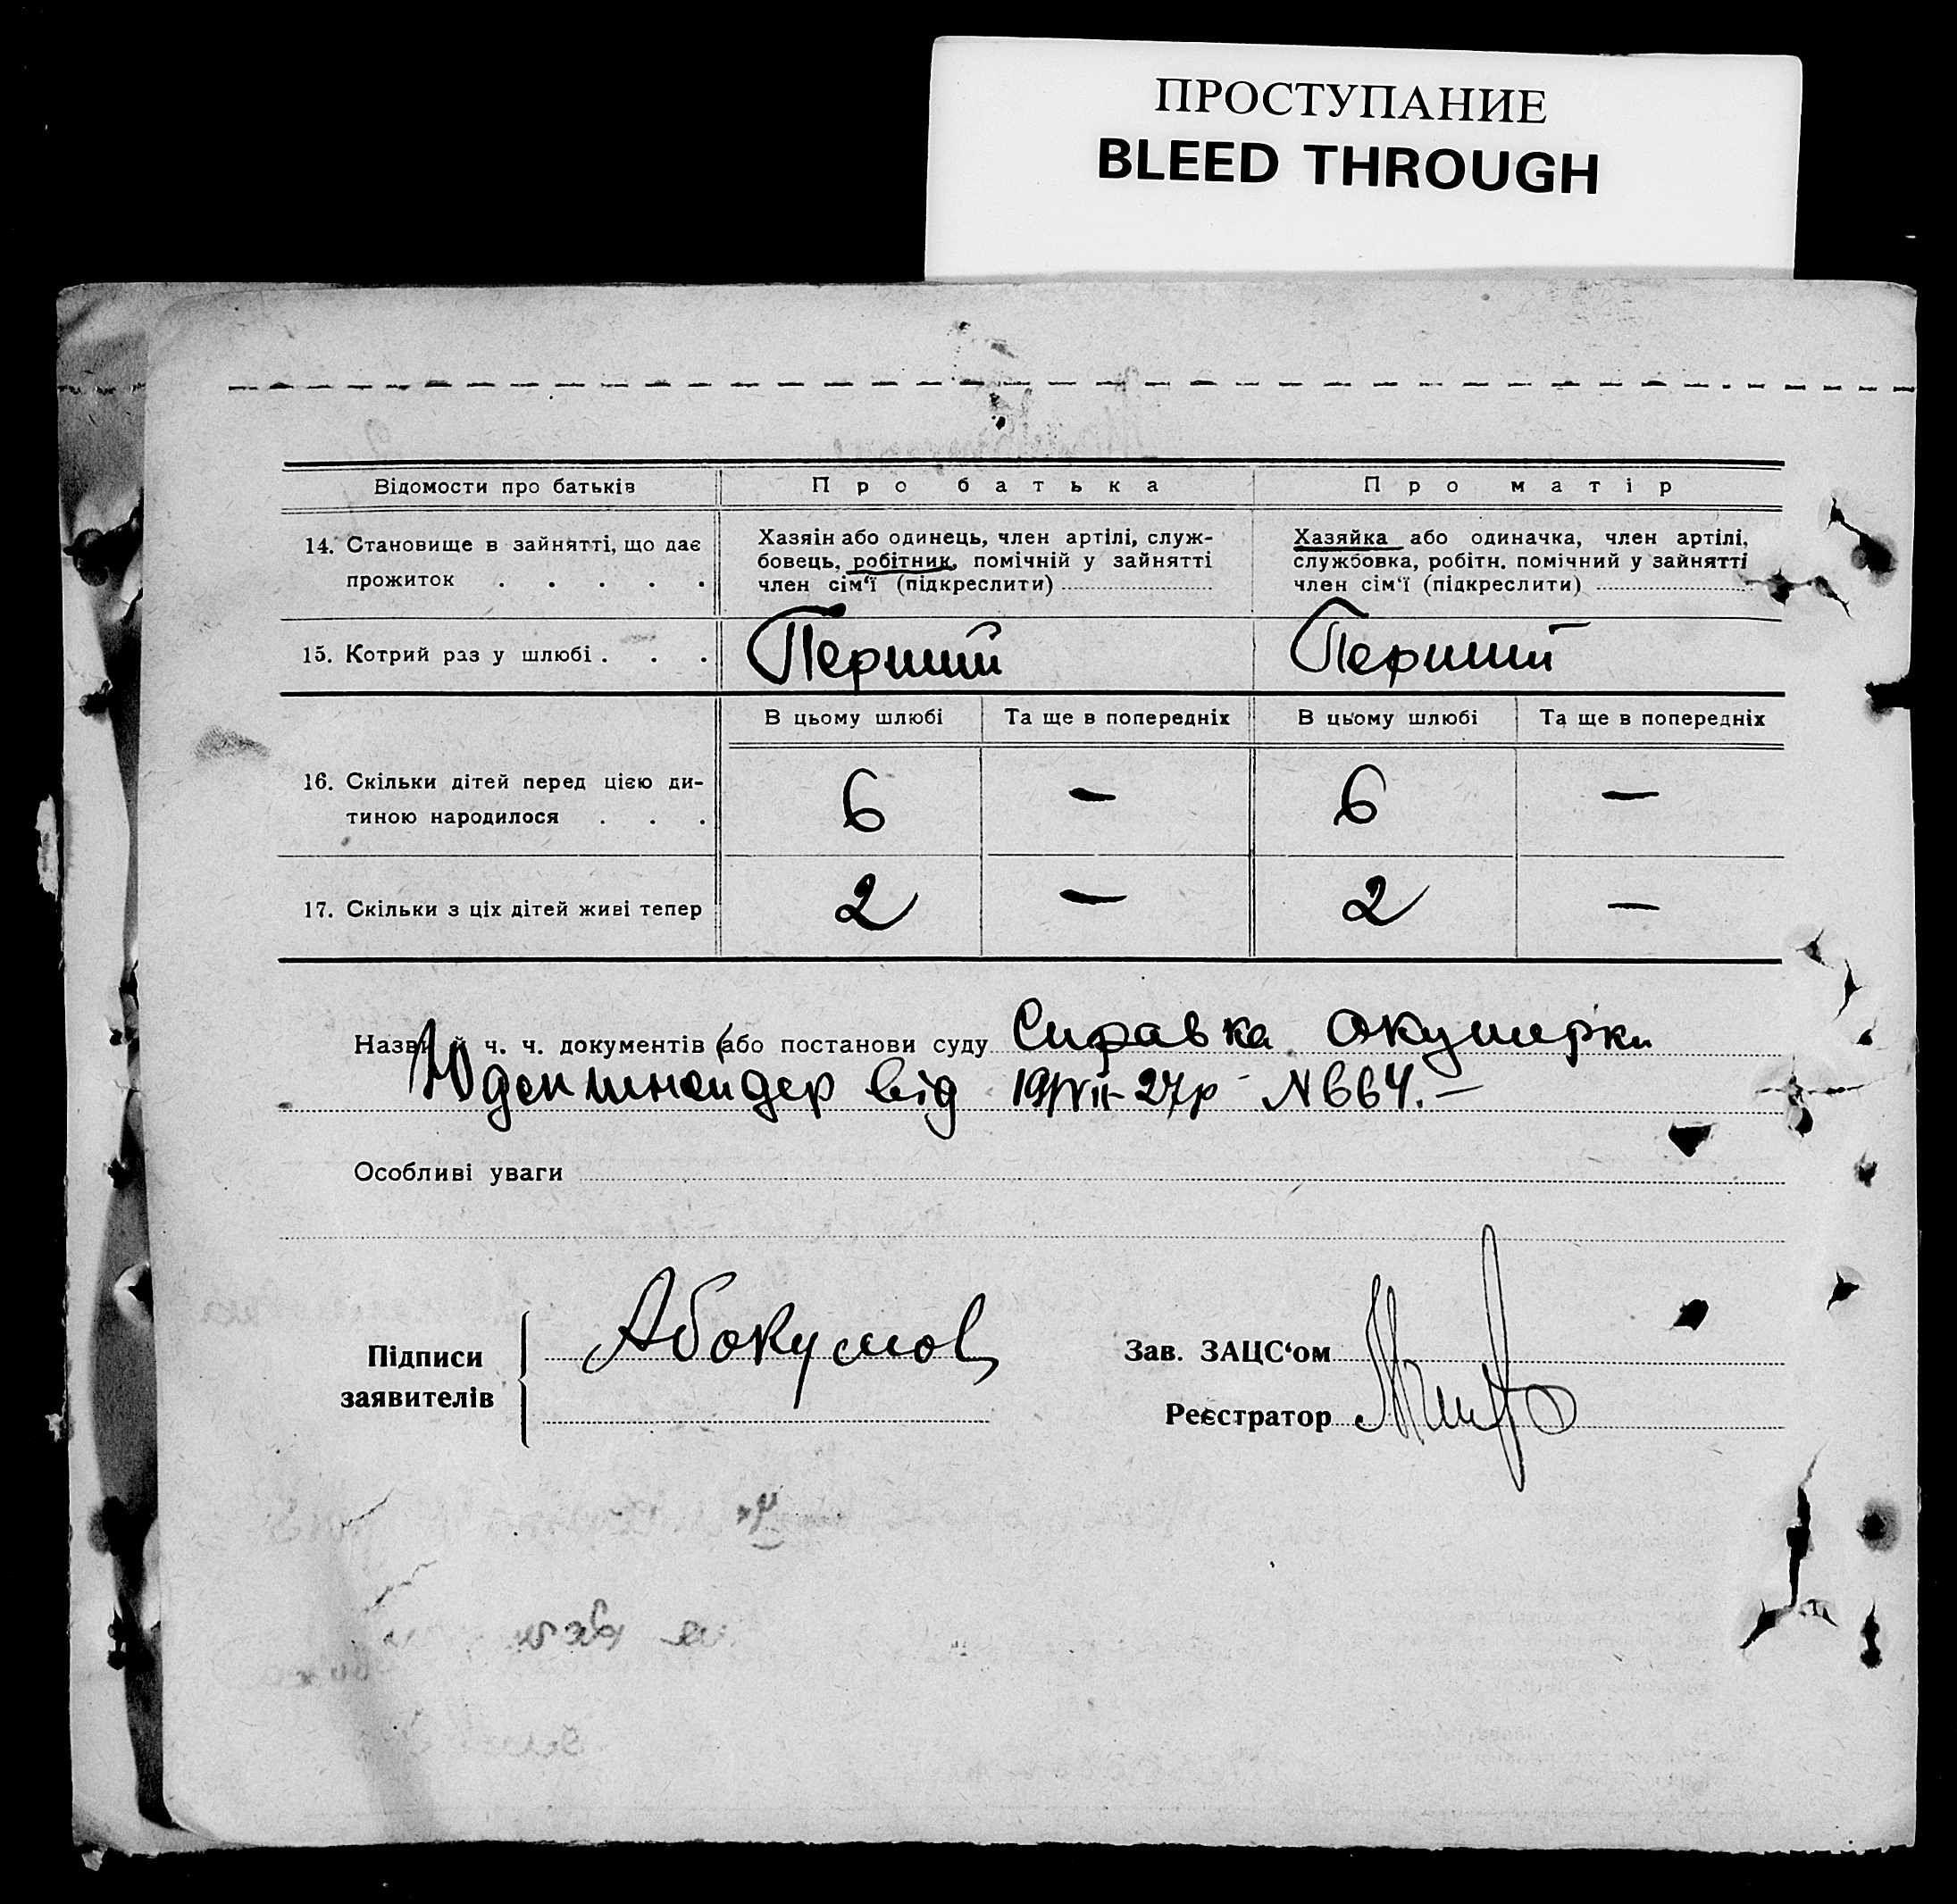 ПРОСТУПАНИЕ
BLEED THROUGH
Відомости про батьків
Про батька
Про матір
14. Становище в зайнятті, що дає
прожиток . . . . .
Хазяін або одинець, член артілі, служ-
бовець, робітник, помічній у зайнятті
член сім'ї (підкреслити)
Хазяйка або одиначка, член артілі,
службовка, робітн. помічний у зайнятті
член сім'ї (підкреслити)
15. Котрий раз у шлюбі . . .
Перший
Перший
В цьому шлюбі
Та ще в попередніх
В цьому шлюбі
Та ще в попередніх
16. Скільки дітей перед цією ди-
тиною народилося . . .
6
—
6
—
17. Скільки з ціх дітей живі тепер
2
—
2
—
Назви й ч. ч. документів (або постанови суду Справка акушерки
від 19/VII-27р N664.—
Особливі уваги
Підписи
заявителів
Абокумов
Зав. ЗАЦС'ом
Реєстратор